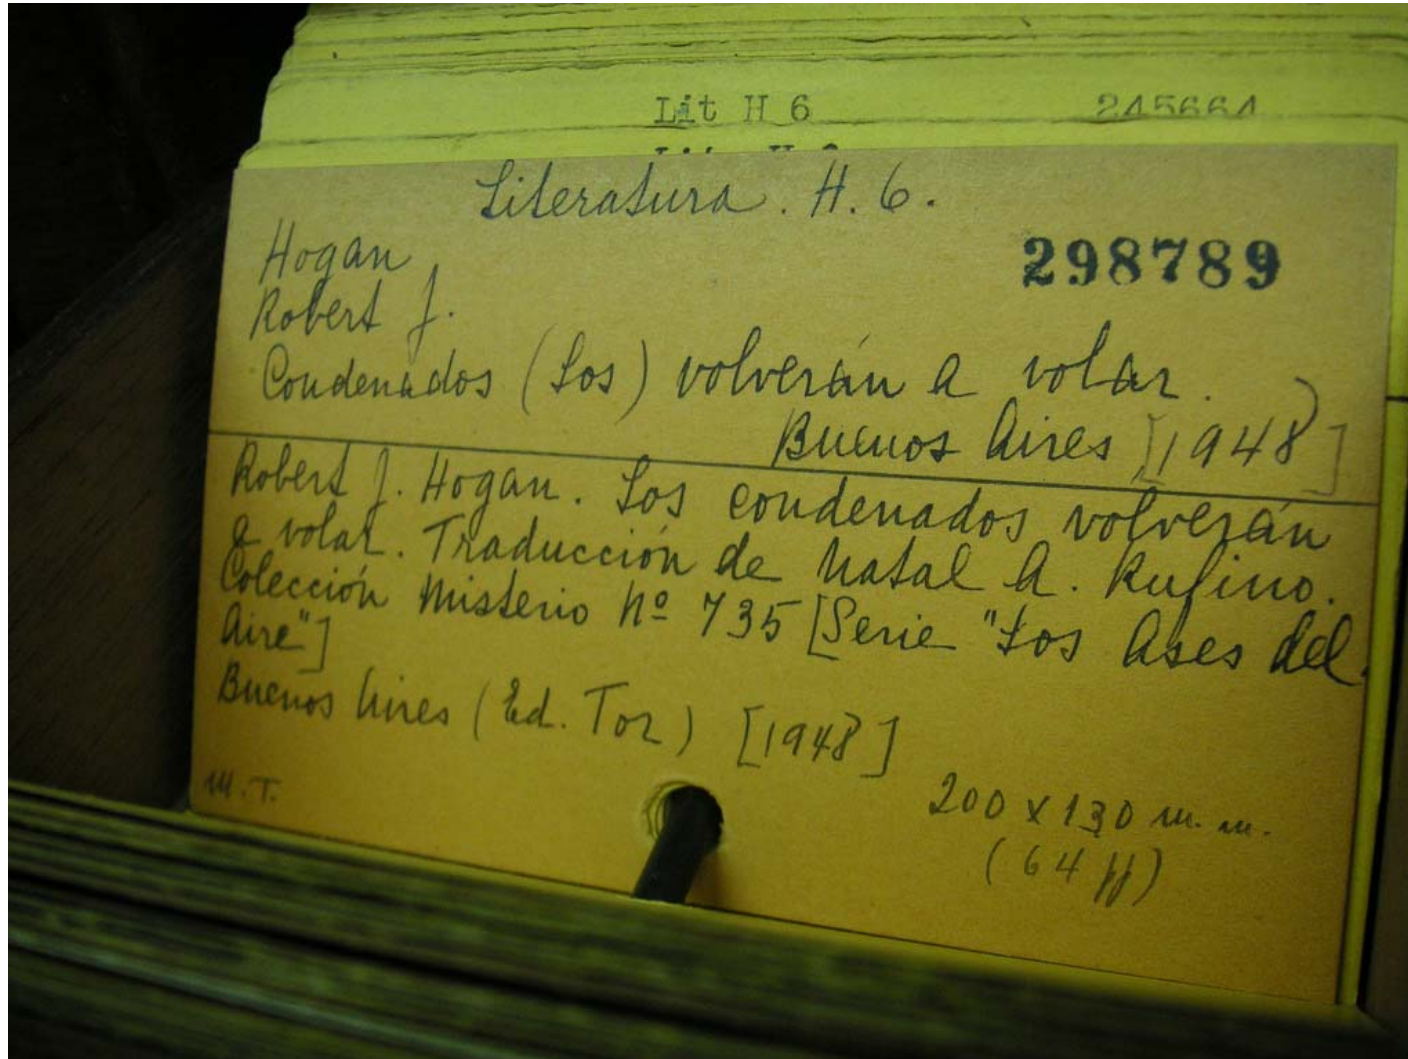 Lit H 6 245664
Literatura. H. 6.
298789
Hogan
Robert J.
Condenados (Los) volverán a volar.
Buenos Aires [1948]
Robert J. Hogan. Los condenados volverán
a volar. Traducción de Natal A. Rufino.
Colección Misterio Nº 735 [Serie "Los Ases del
Aire"]
Buenos Aires (Ed. Tor) [1948]
M.T.
200 x 130 m. m.
(64 pp)